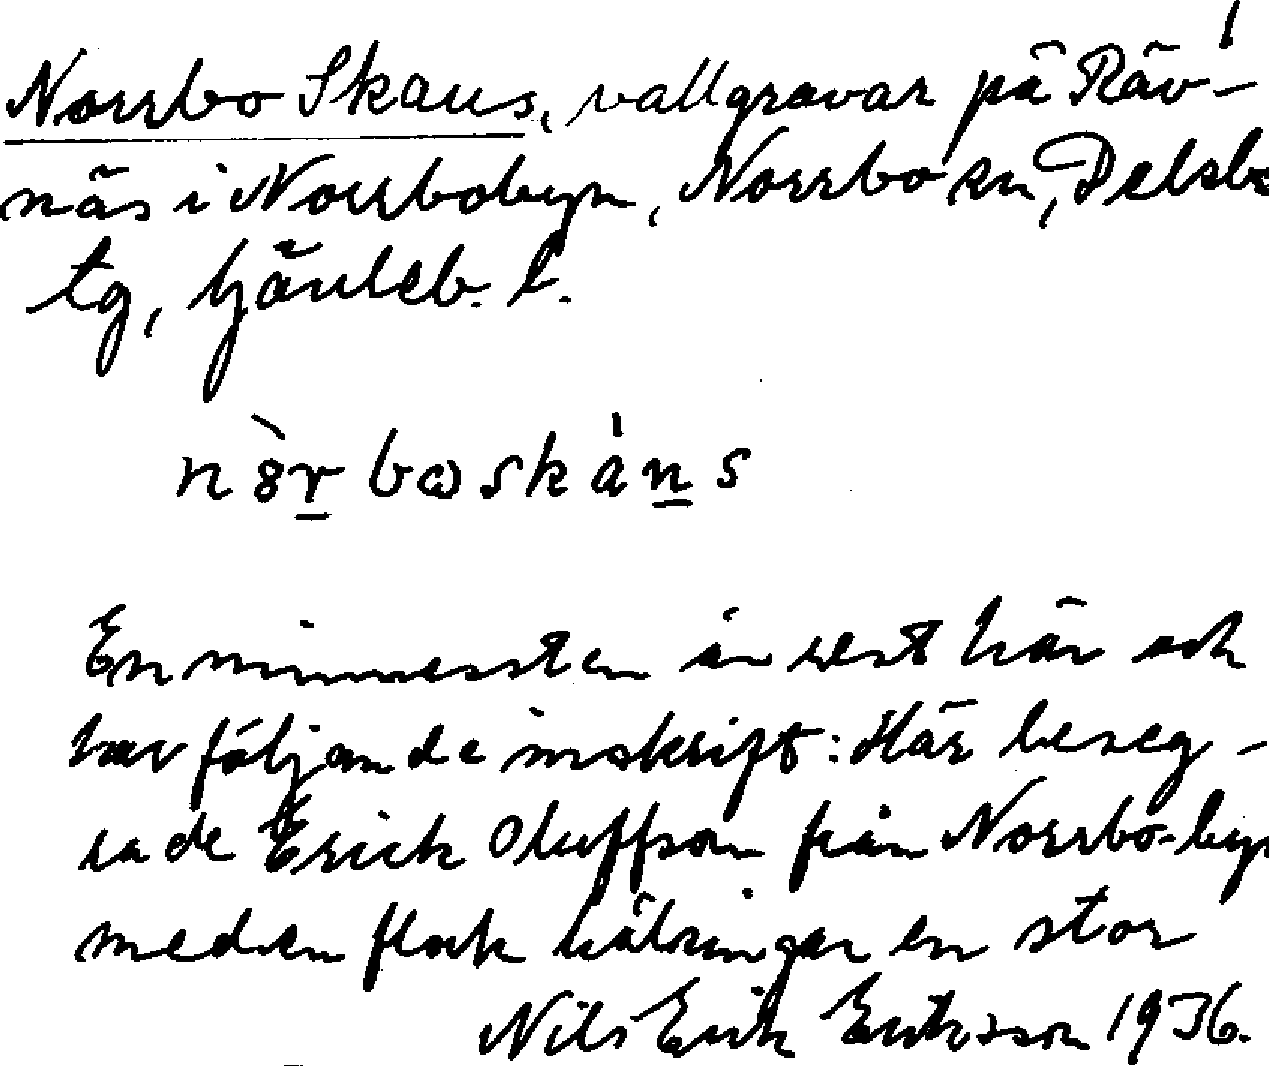 Norrbo Skans, vallgravar på Räv-
näs i Norrbobyn, Norrbo sn, Delsbo
tg, Gävleb. l.
nòr boskáns
En minnessten är rest här och
har följande inskrift: Här beseg-
rade Erick Oluffson från Norrbo-byn
med en flock hälsingar en stor
Nils Erik Eriksson 1936.